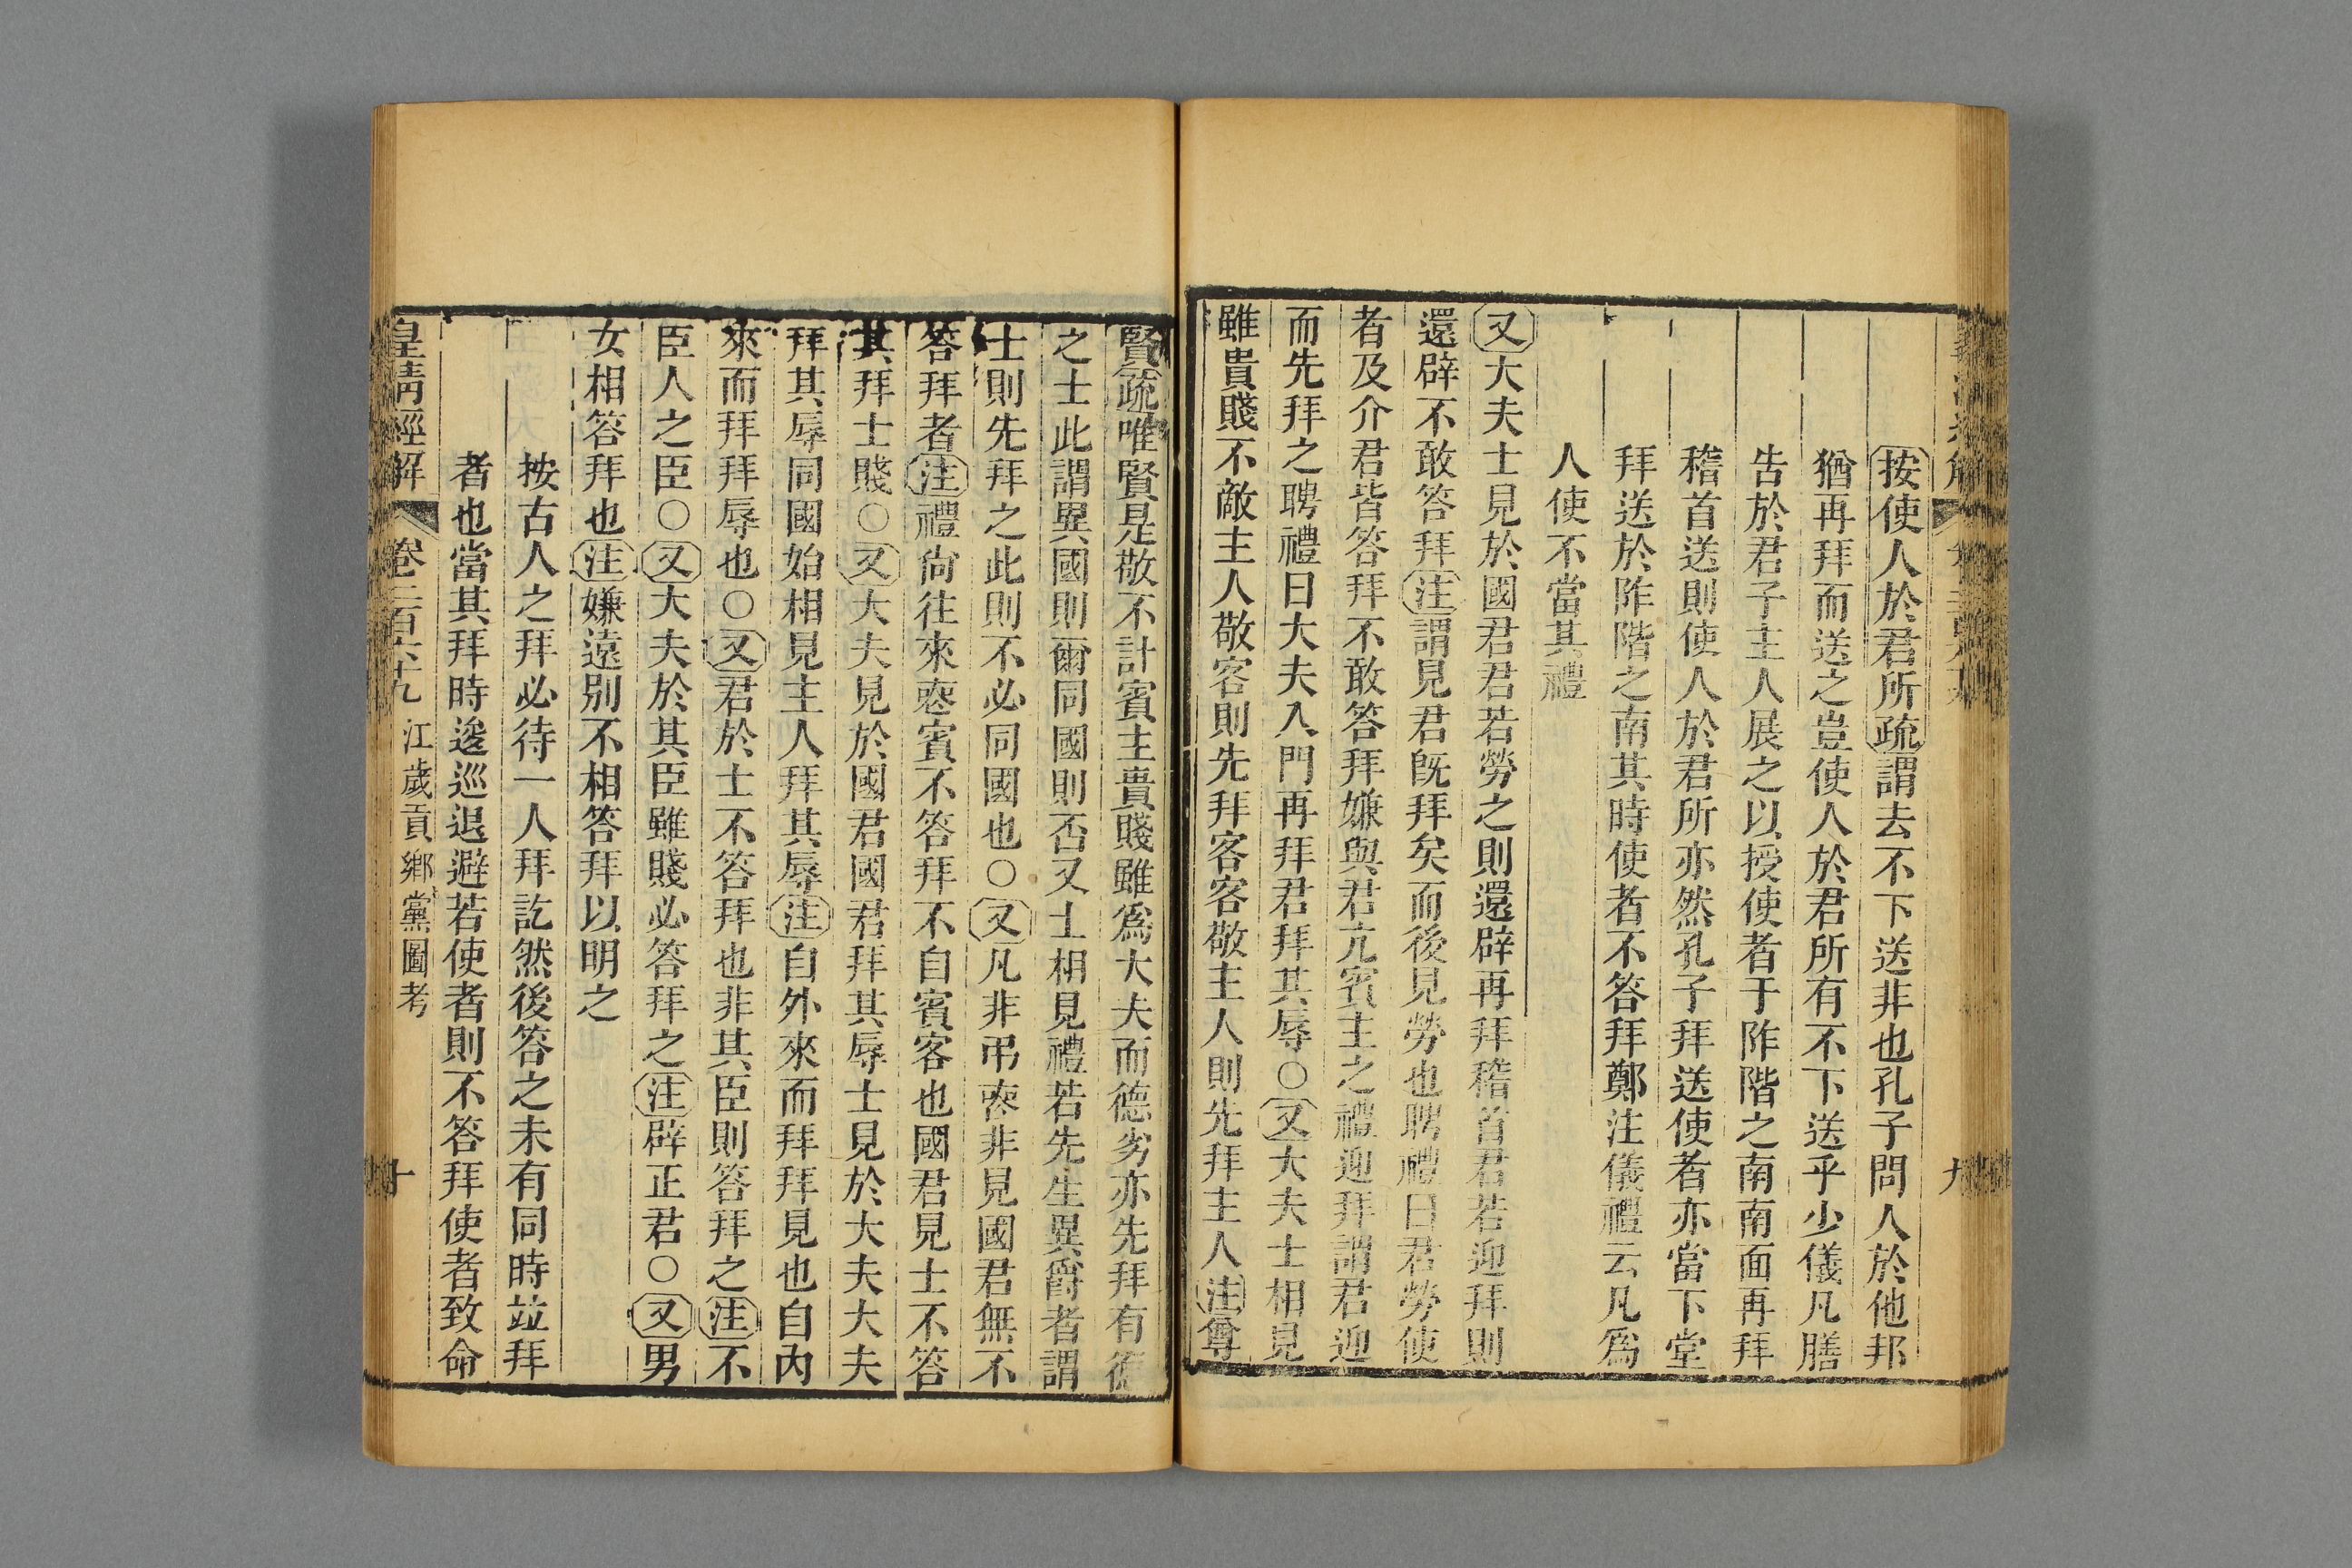 按使人於君所疏謂去不下送非也孔子問人於他邦
猶再拜而送之豈使人於君所有不下送乎少儀凡膳
告於君子主人展之以授使者于阼階之南南面再拜
稽首送則使人於君所亦然孔子拜送使者亦當下堂
拜送於阼階之南其時使者不答拜鄭注儀禮云凡爲
人使不當其禮
又大夫士見於國君君若勞之則還辟再拜稽首君若迎拜則
還辟不敢答拜注謂見君既拜矣而後見勞也聘禮曰君勞使
者及介君皆答拜不敢答拜嫌與君亢賓主之禮迎拜謂君迎
而先拜之聘禮曰大夫入門再拜君拜其辱○又大夫士相見
雖貴賤不敵主人敬客則先拜客客敬主人則先拜主人注尊
九
賢疏唯賢是敬不計賓主貴賤雖爲大夫而德劣亦先拜有德
之士此謂異國則爾同國則否又士相見禮若先生異爵者謂
士則先拜之此則不必同國也○又凡非弔喪非見國君無不
答拜者注禮尙往來喪賓不答拜不自賓客也國君見士不答
其拜士賤○又大夫見於國君國君拜其辱士見於大夫大夫
拜其辱同國始相見主人拜其辱注自外來而拜拜見也自內
來而拜拜辱也○又君於士不答拜也非其臣則答拜之注不
臣人之臣○又大夫於其臣雖賤必答拜之注辟正君○又男
女相答拜也注嫌遠別不相答拜以明之
按古人之拜必待一人拜訖然後答之未有同時竝拜
者也當其拜時逡巡退避若使者則不答拜使者致命
皇清經解 卷二百六十九 江歲貢鄉黨圖考 十